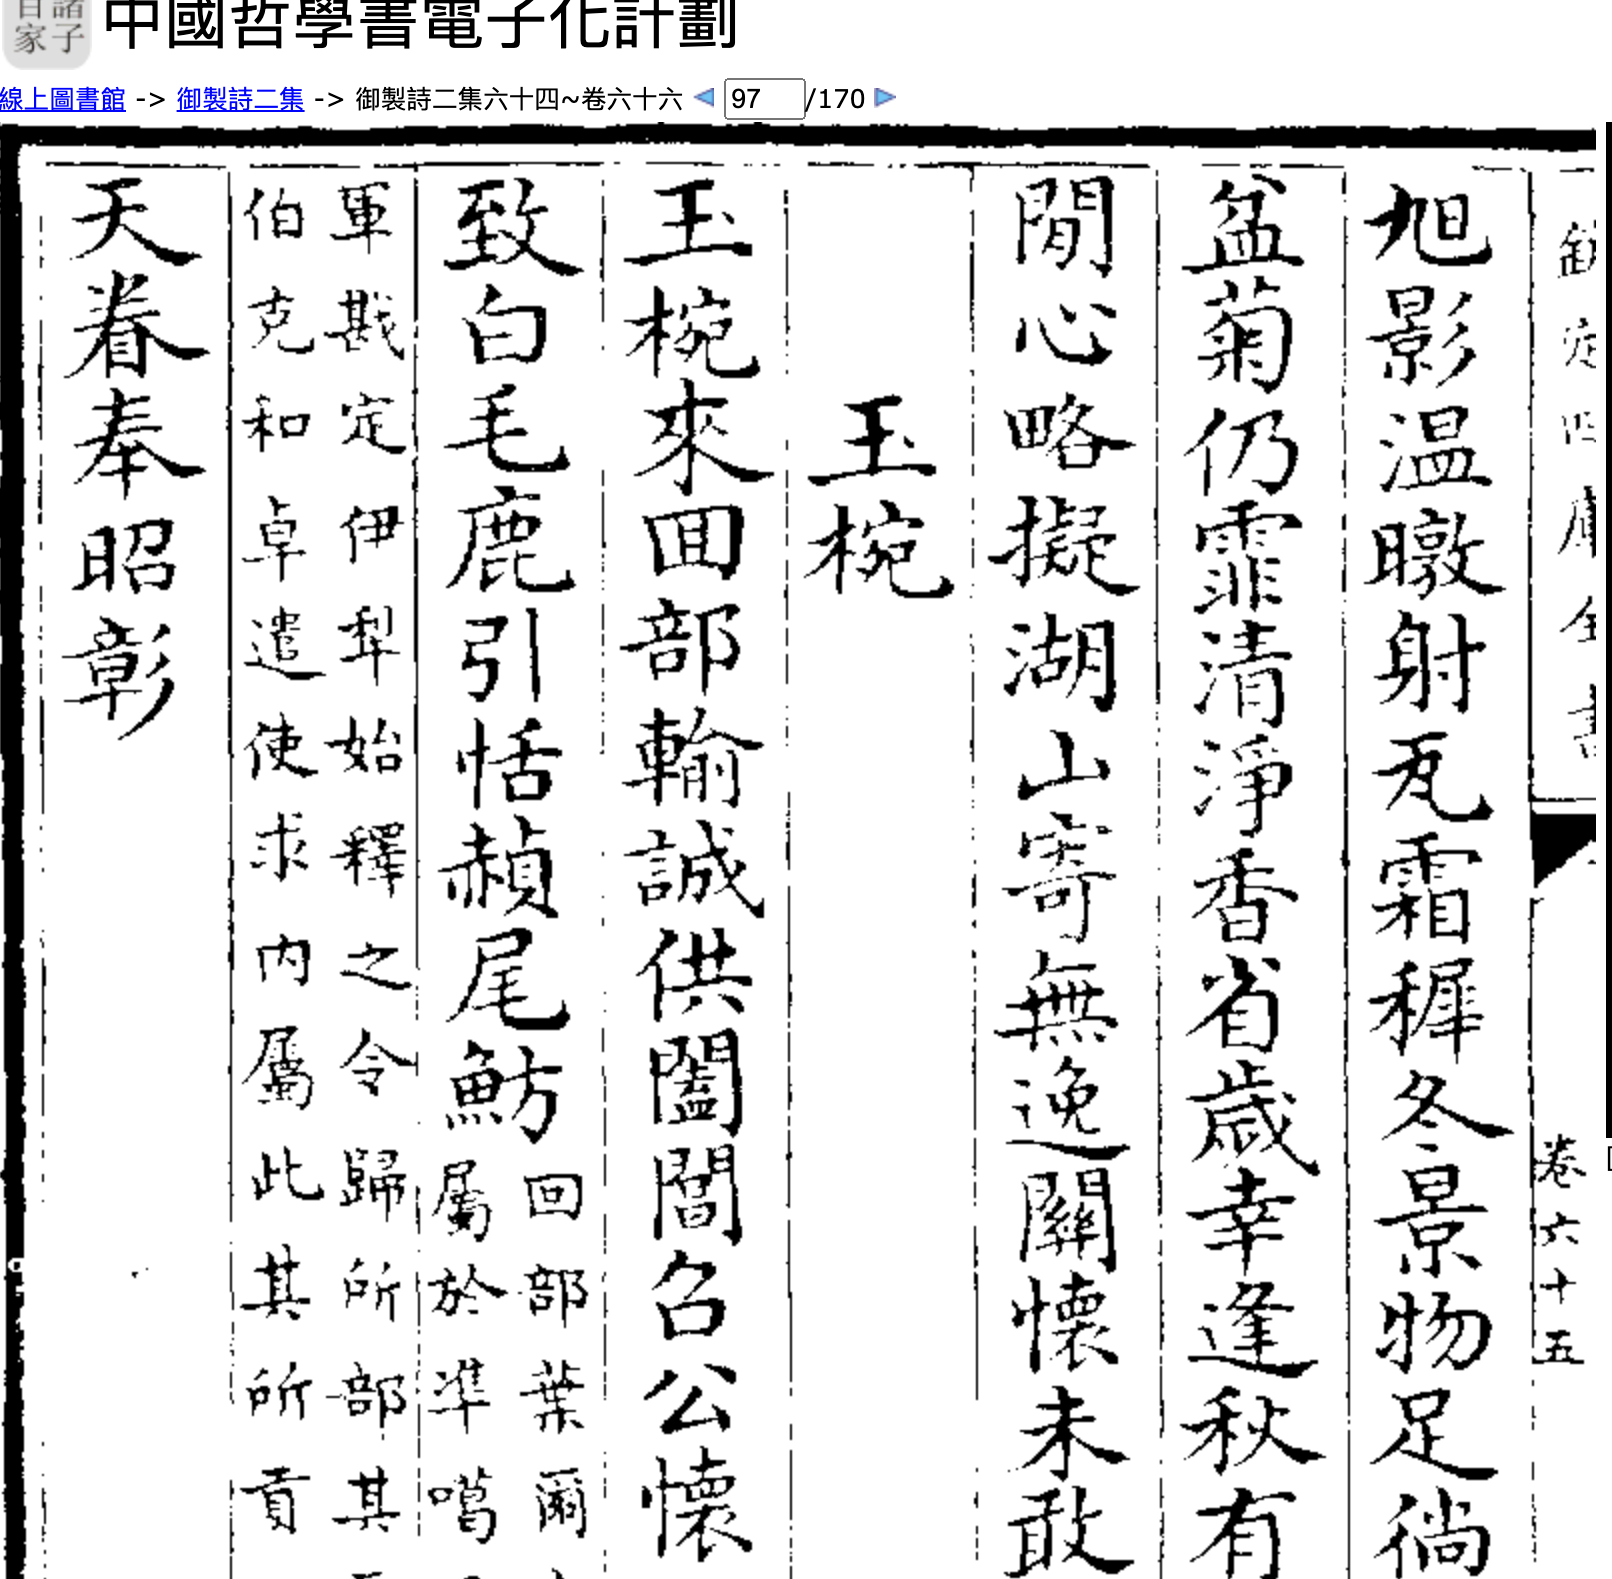 諸子百家
中國哲學書電子化計劃
線上圖書館 -> 御製詩二集 -> 御製詩二集六十四~卷六十六 97 /170
欽定四庫全書
卷六十五
旭影温暾射瓦霜穉冬景物足徜
盆菊仍霏清淨香省歲幸逢秋有
閒心略擬湖山寄無逸關懷未敢
玉椀
玉椀來囬部輸誠供闔閭召公懷
致白毛鹿引恬赬尾魴
回部葉爾
屬於凖噶
軍戡定伊犂始釋之令歸所部其
伯克和卓遣使求内屬此其所貢
天眷奉昭彰